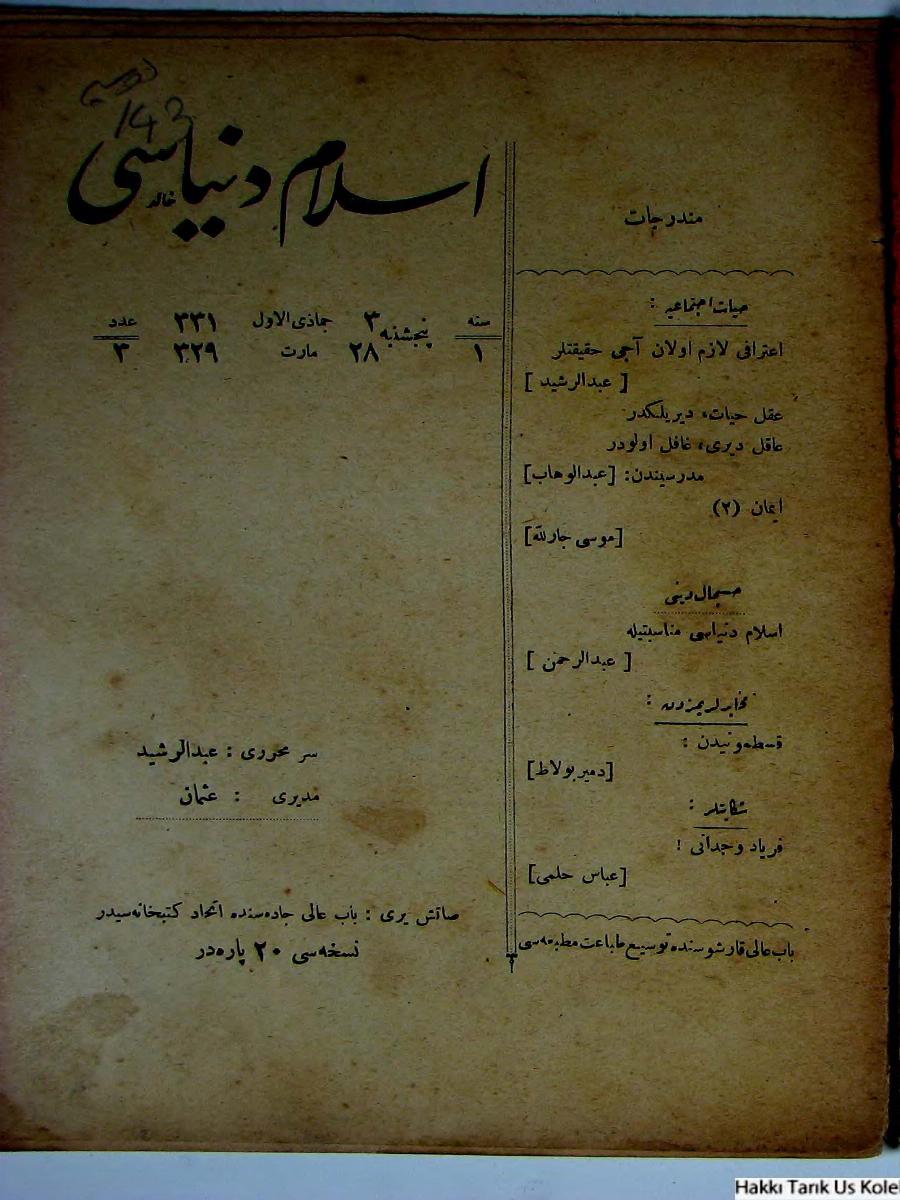 142
اسلام دنیاسی
خالد
سنه ۱
پنجشنبه
۳ جماذی الاول ۳۳۱
۲۸ مارت ۳۲۹
عدد ۳
مندرجات
حیات اجتماعیه :
اعترافی لازم اولان آجی حقیقتلر
[ عبدالرشید ]
عقل حیات، دیریلکدر
عاقل دیری، غافل اولودر
مدرسیندن: [عبدالوهاب]
ایمان (۲)
[موسی جارالله]
حسبحال دینی
اسلام دنیاسی مناسبتیله
[ عبدالرحمن ]
مخابرلریمزدن :
قسطمونیدن :
[دمیر بولاط]
شکایتلر :
فریاد وجدانی !
[عباس حلمی]
باب عالی قارشوسنده توسیع طباعت مطبعه سی
سر محرری : عبدالرشید
مدیری : عثمان
صاتش یری : باب عالی جاده سنده اتحاد کتبخانه سیدر
نسخه سی ۲۰ پاره در
Hakkı Tarık Us Kole